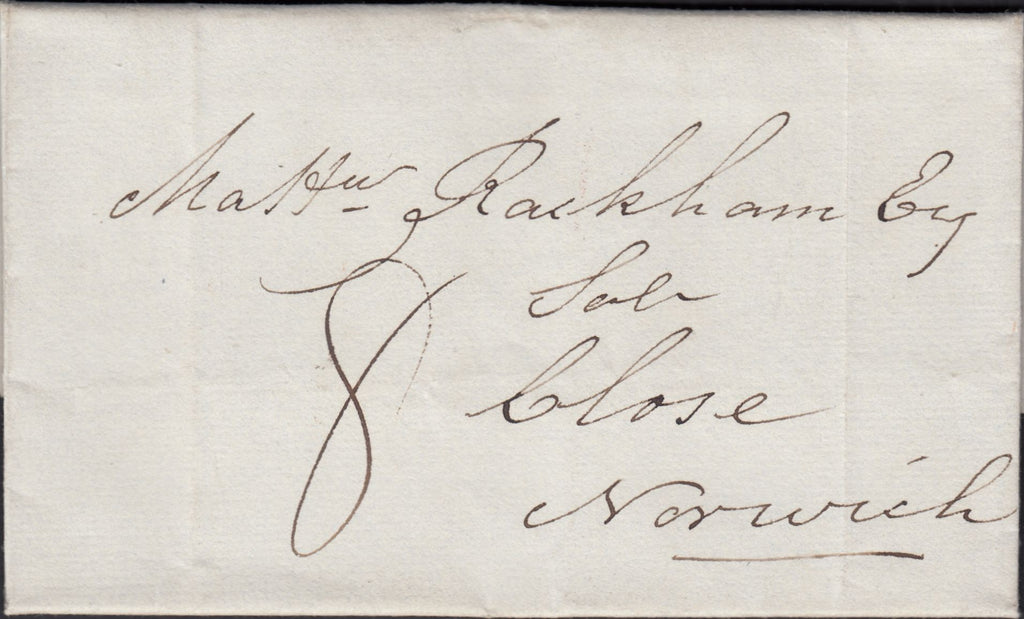 Mattw Rackham Esq
Solr
8
Close
Norwich